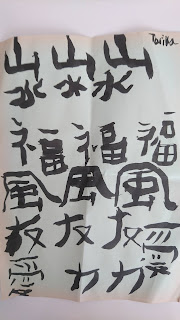 Tarika
山山山
水水水
福福福
風風風
友友友愛
力力